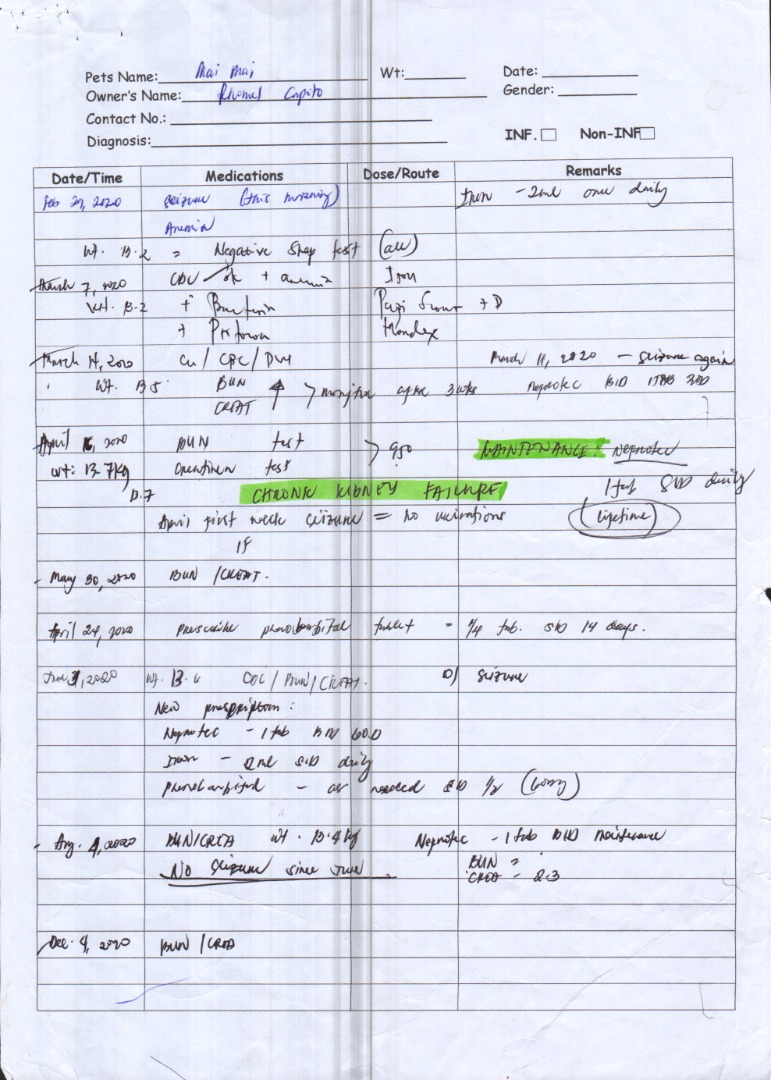 Pets Name: Mai Mai Wt: Date:
Owner's Name: Rhomel Capito Gender:
Contact No.:
Diagnosis: INF. Non-INF
Date/Time Medications Dose/Route Remarks
Feb 29, 2020 seizure (this morning) Iron - 2ml once daily
Anemia
Wt. 13.2 = Negative Snap test (all)
March 7, 2020 CBC ok + anemia Iron
Wt. 13.2 +
+
March 14, 2020 / CBC / March 11, 2020 - seizure again
Wt. 13.5 BUN ↑ > monitor after 3 wks Nephrotec BID
CREAT
April 2020 BUN test > 950 MAINTENANCE: Nephrotec
wt: 13.7kg Creatinin test 1 tab SID daily
13.7 CHRONIC KIDNEY FAILURE
April first week seizure = no (lifetime)
If
- May 30, 2020 BUN / CREAT.
April 24, 2020 Prescribe phenobarbital tablet - 1/4 tab. SID 14 days.
June 2020 Wt. 13.6 CBC / BUN / CREAT. seizure
New prescription:
Nephrotec - 1 tab BID 60D
Iron - 2ml SID daily
Phenobarbital - as needed SID 1/2
- Aug. 4, 2020 BUN/CREA wt. 13.4kg Nephrotec - 1 tab BID maintenance
No seizure since June BUN =
CREA - 2.3
Dec. 4, 2020 BUN / CREA